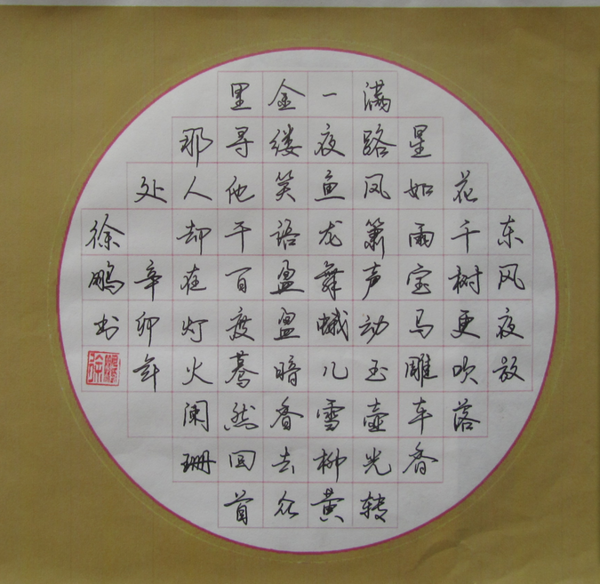 东风夜放
花千树更吹落
星如雨宝马雕车香
满路凤箫声动玉壶光转
一夜鱼龙舞蛾儿雪柳黄
金缕笑语盈盈暗香去众
里寻他千百度蓦然回首
那人却在灯火阑珊
处 辛卯年
徐鹏书